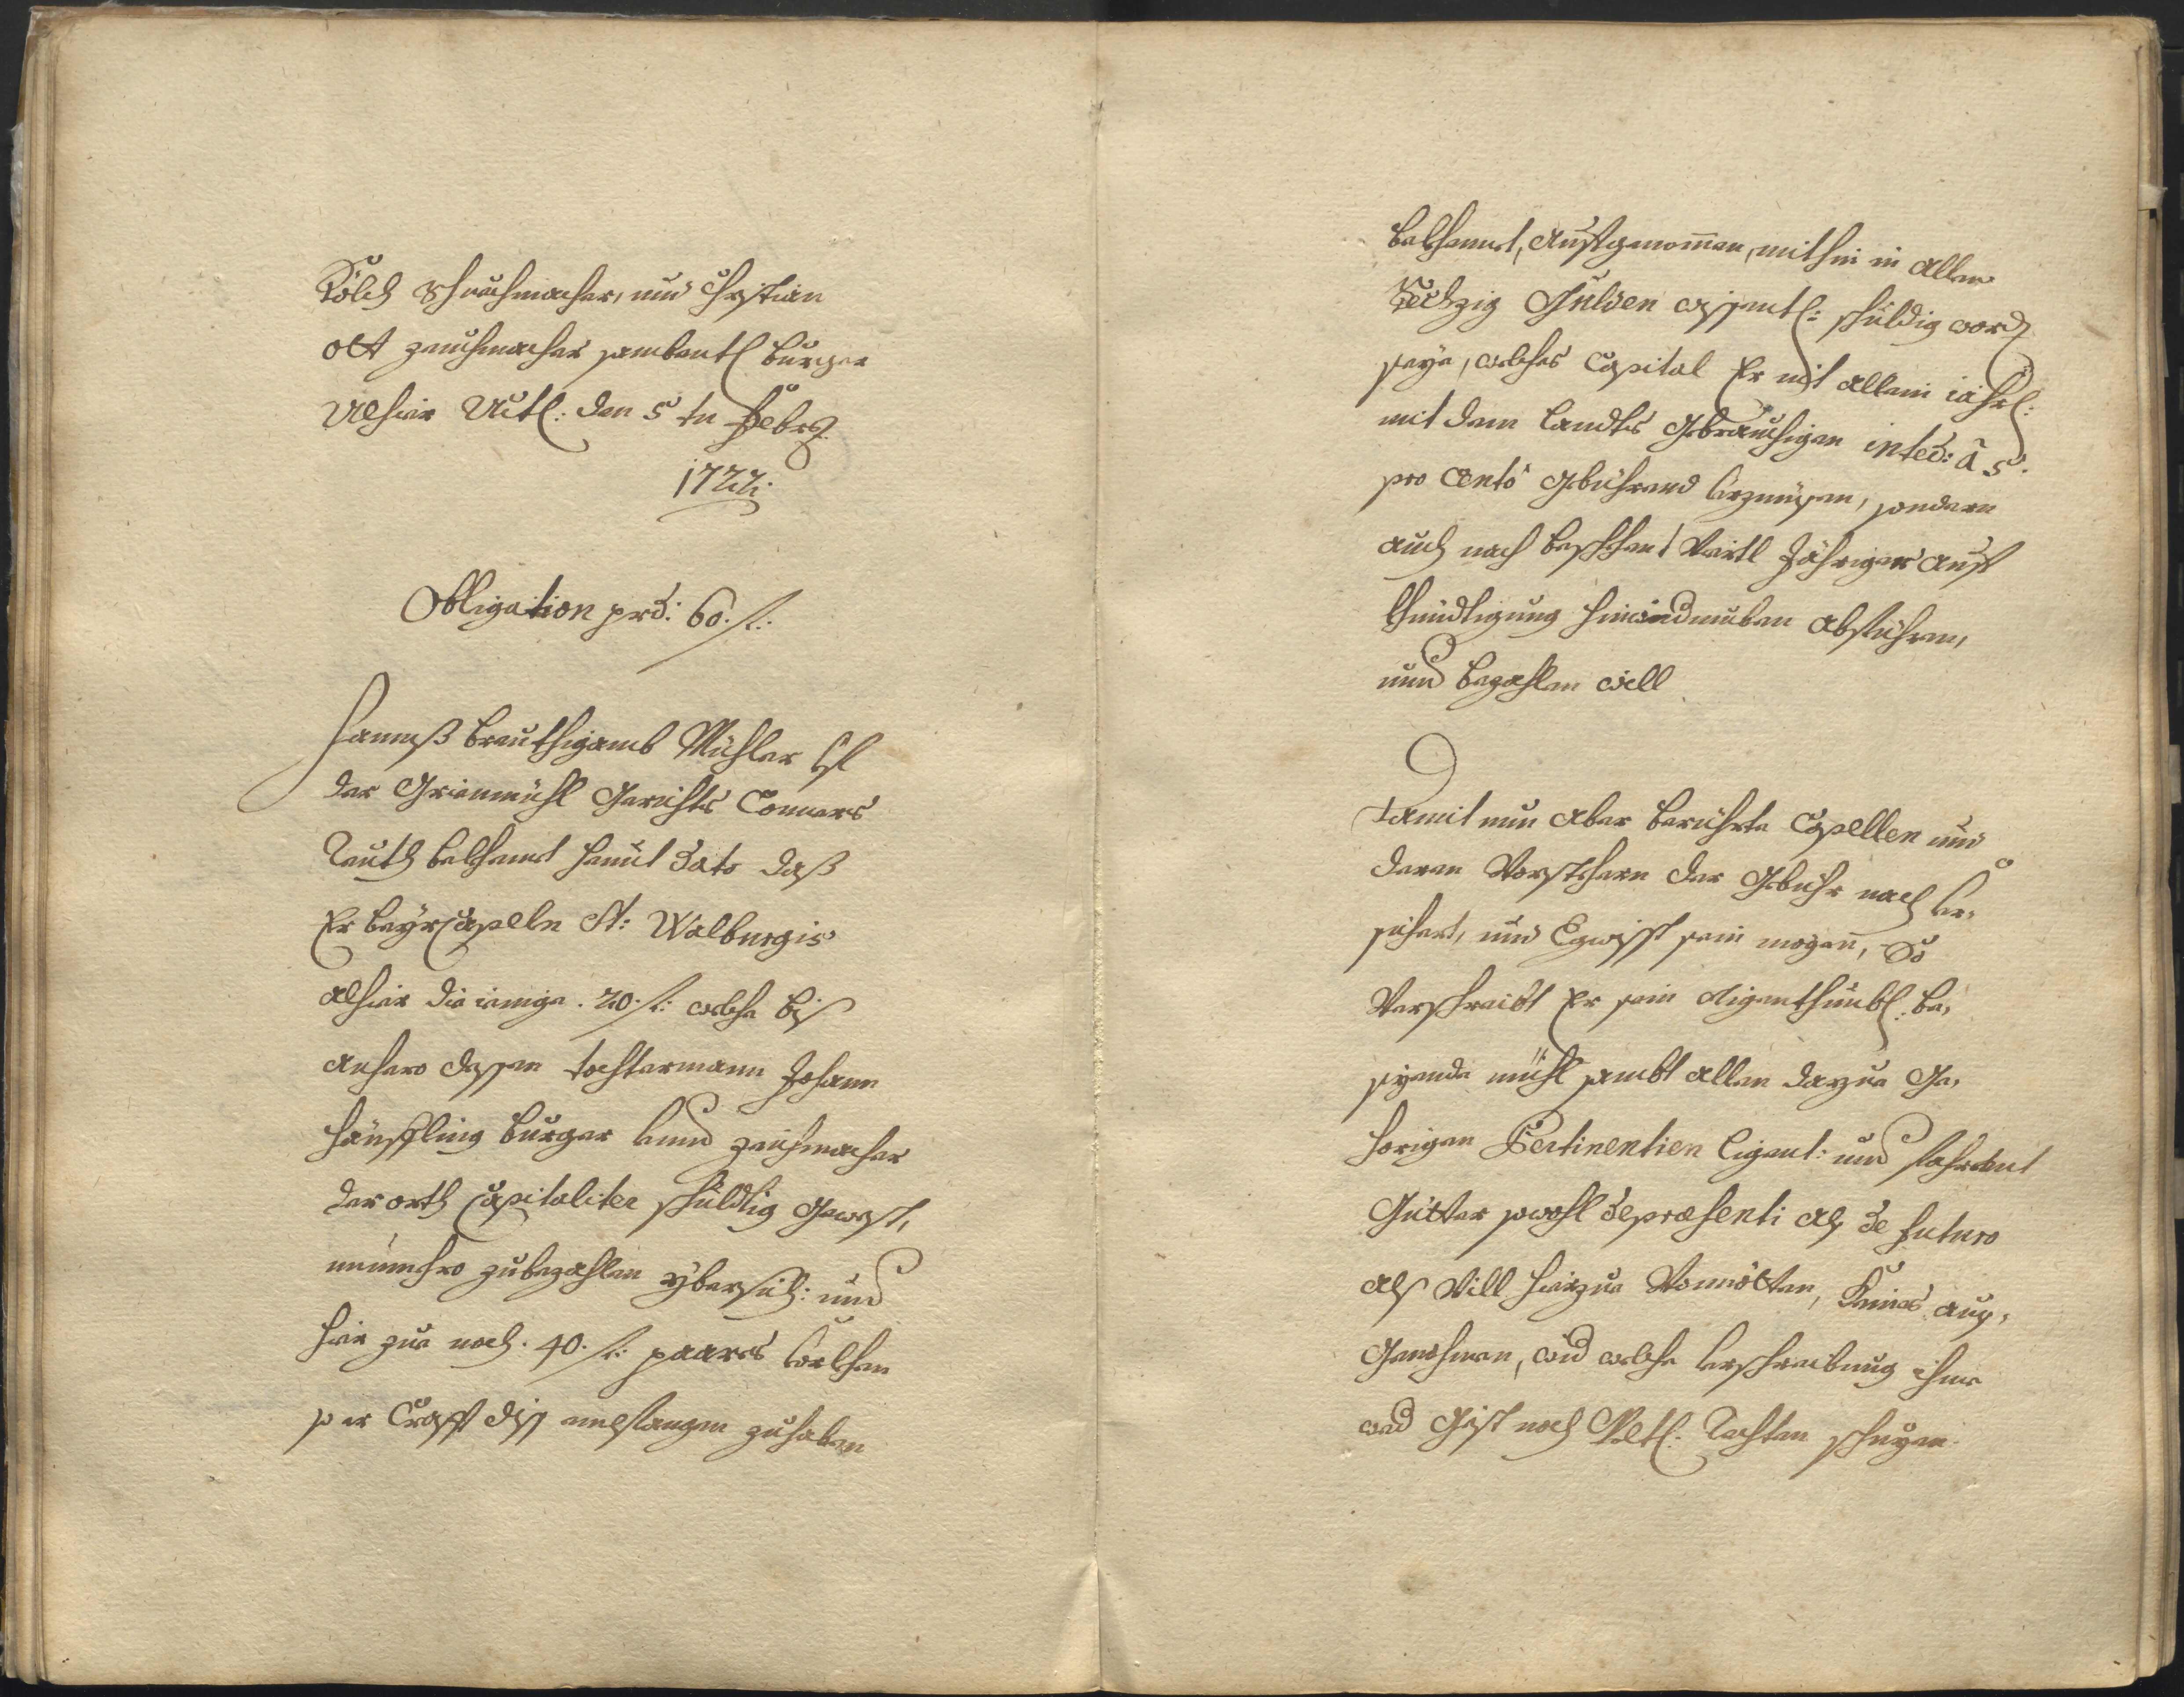 Kölch Schuchmacher, und Christian
ott zeuchmacher sambentl burger
Alhier Actl: den 5 tn Febrs
1722.
Obligation prd: 60. fl:
Hannß breuthigamb Mühler
der Grienmühl Gerichts Conners
Reuth bekhent heuut dato daß
Er beyr Capelln St: Walburgis
alhier die ienige. 20. fl: welche biß
anhero dessen tochtermann Johann
Häusling burger vnnd zeuchmacher
der orth Capitaliter schuldtig Gewest,
nunmehro zubezahlen yber sich: und
hier zue noch. 40. fl: paares
per Crafft diss empfangen zuhaben
bekhennt, Aussgenommen, mithin in allem
Sechzig Gulden wissentl: schuldig word
seye, welches Capital Er nit allein iährl:
mit dem landts Gebreuchigen inted: à 5.
pro Cento Gebührend verzinsen, sondern
auch nach beschehent Viertl Jähriger Auff
khündtigung abführen,
und bezahlen will
Damit nun aber berührte Capellen und
deren Vorstehern der Gebühr nach ver-
sichert, und sein mögen, So
Verschreibt Er sein Aigenthumbl: be-
sizende mühl sambt allen darzue Ge-
horigen Pertinentien ligent: und fahrent
Gütter sowohl de præsenti alß de futuro
alß Vill hierzue Vonnötten, Keines auß-
Genohmen, wid welche verschreibung ihme
wed Gist noch Weltl: Rechten schuzen